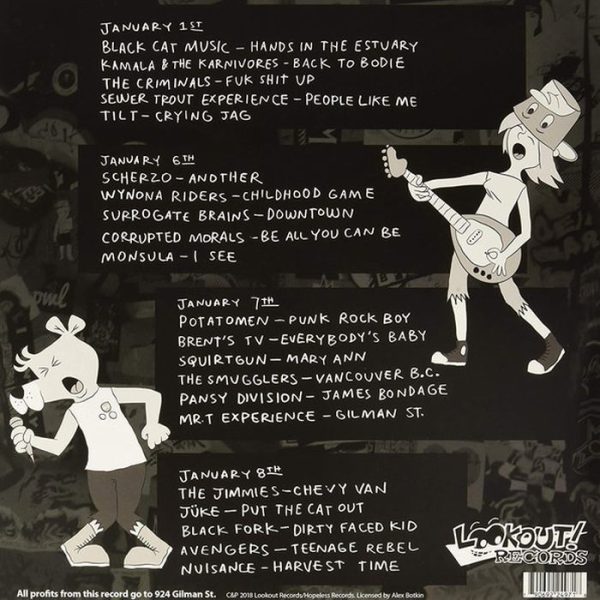 JANUARY 1ST
BLACK CAT MUSIC – HANDS IN THE ESTUARY
KAMALA & THE KARNIVORES – BACK TO BODIE
THE CRIMINALS – FUK SHIT UP
SEWER TROUT EXPERIENCE – PEOPLE LIKE ME
TILT – CRYING JAG
JANUARY 6TH
SCHERZO – ANOTHER
WYNONA RIDERS – CHILDHOOD GAME
SURROGATE BRAINS – DOWNTOWN
CORRUPTED MORALS – BE ALL YOU CAN BE
MONSULA – I SEE
JANUARY 7TH
POTATOMEN – PUNK ROCK BOY
BRENT'S TV – EVERYBODY'S BABY
SQUIRTGUN – MARY ANN
THE SMUGGLERS – VANCOUVER B.C.
PANSY DIVISION – JAMES BONDAGE
MR.T EXPERIENCE – GILMAN ST.
JANUARY 8TH
THE JIMMIES – CHEVY VAN
JÜKE – PUT THE CAT OUT
BLACK FORK – DIRTY FACED KID
AVENGERS – TEENAGE REBEL
NUISANCE – HARVEST TIME
LOOKOUT!
RECORDS
All profits from this record go to 924 Gilman St.
C&P 2018 Lookout Records/Hopeless Records. Licensed by Alex Botkin